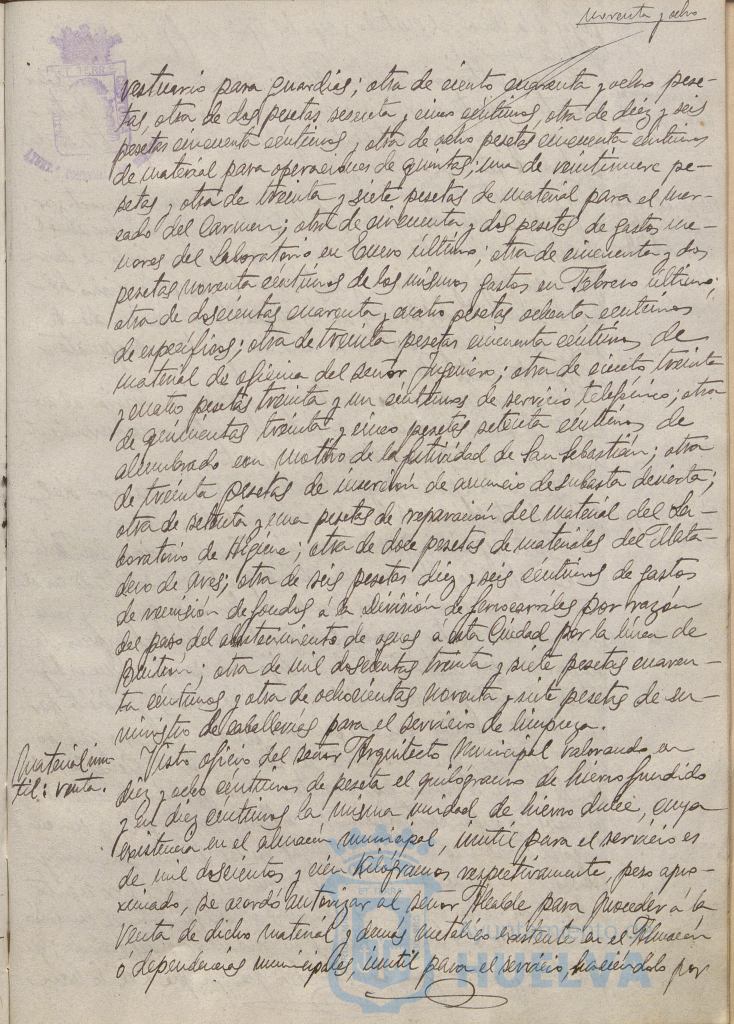 noventa y ocho
vestuario para guardias; otra de ciento cuarenta y ocho pese-
tas, otra de dos pesetas sesenta y cinco céntimos, otra de diez y seis
pesetas cincuenta céntimos y otra de ocho pesetas cincuenta céntimos
de material para operaciones de quintas; una de veintinueve pe-
setas y otra de treinta y siete pesetas de material para el mer-
cado del Carmen; otra de cincuenta y dos pesetas de gastos me-
nores del Laboratorio en Enero último; otra de cincuenta y dos
pesetas noventa céntimos de los mismos gastos en Febrero último;
otra de doscientas cuarenta y cuatro pesetas ochenta céntimos
de específicos; otra de treinta pesetas cincuenta céntimos de
material de oficina del señor Ingeniero; otra de ciento treinta
y cuatro pesetas treinta y un céntimos de servicio telefónico; otra
de quinientas treinta y cinco pesetas setenta céntimos de
alumbrado con motivo de la festividad de San Sebastián; otra
de treinta pesetas de inserción de anuncio de subasta desierta;
otra de setenta y una pesetas de reparación del material del La-
boratorio de Higiene; otra de doce pesetas de materiales del Mata-
dero de Aves; otra de seis pesetas diez y seis céntimos de gastos
de remisión de fondos a la División de ferrocarriles por razón
del paso del abastecimiento de aguas á esta Ciudad por la línea de
Buitrón; otra de mil doscientas treinta y siete pesetas cuaren-
ta céntimos y otra de ochocientas noventa y siete pesetas de su-
ministro de caballerías para el servicio de limpieza.
Material inu-
til: venta.
Visto oficio del señor Arquitecto Municipal valorando en
diez y ocho céntimos de peseta el quilogramo de hierro fundido
y en diez céntimos la misma unidad de hierro dulce, cuya
existencia en el almacén municipal, inutil para el servicio es
de mil doscientos y cien kilógramos respectivamente, peso apro-
ximado, se acordó autorizar al señor Alcalde para proceder á la
venta de dicho material y demás metálico existente en el Almacén
ó dependencias municipales, inutil para el servicio, haciéndolo por
Ayuntamiento de
HUELVA